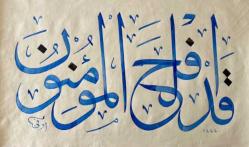 قد افلح المؤمنون